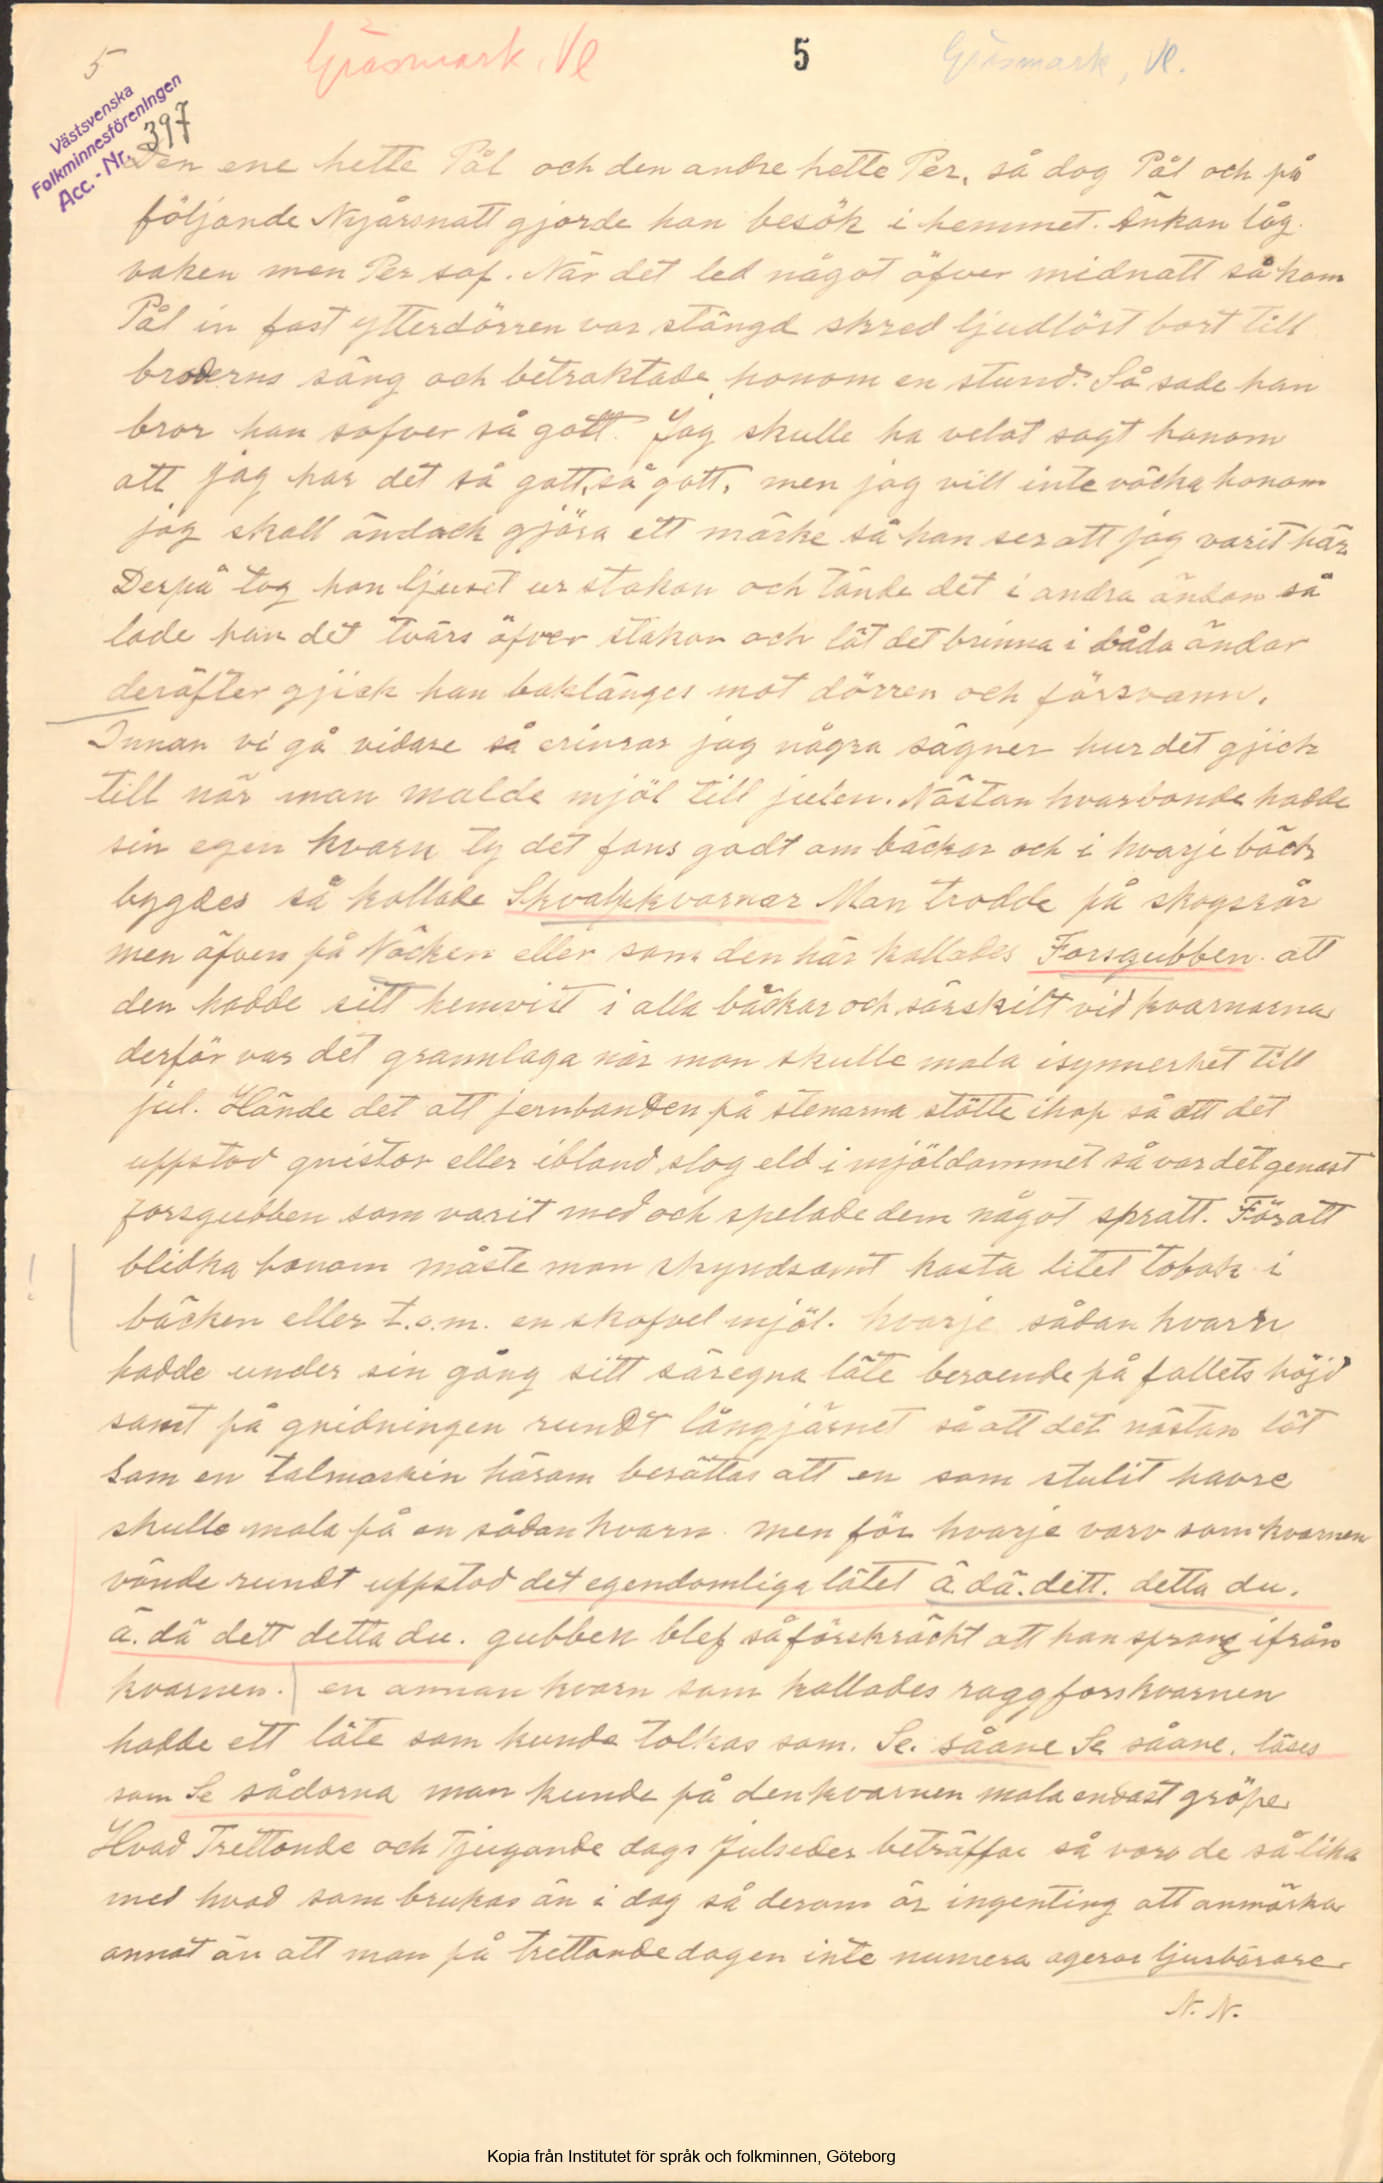 5
Gräsmark, Vl
5
Gräsmark, Vl.
Västsvenska
Folkminnesföreningen
Acc.-Nr. 397
Den ene hette Pål och den andre hette Per, så dog Pål och på
följande Nyårsnatt gjorde han besök i hemmet. Änkan låg
vaken men Per sof. När det led något öfver midnatt så kom
Pål in fast ytterdörren var stängd skred ljudlöst bort till
broderns säng och betraktade honom en stund. Så sade han
bror han sofver så gott. Jag skulle ha velat sagt honom
att jag har det så gott, så gott, men jag vill inte väcka honom
jag skall ändock gjöra ett märke så han ser att jag varit här
Derpå tog han ljuset ur stakan och tände det i andra ändan så
lade han det tvärs öfver stakan och lät det brinna i båda ändar
deräfter gjick han baklänges mot dörren och försvann.
Innan vi gå vidare så erinrar jag några sägner hur det gjick
till när man malde mjöl till julen. Nästan hvarbonde hadde
sin egen kvarn ty det fans godt om bäckar och i hvarje bäck
bygdes så kallade Skvalpkvarnar Man trodde på skogsrår
men äfven på Näcken eller som den här kallades Forsgubben. att
den hadde sitt hemvist i alla bäckar och särskilt vid kvarnarna
derför var det grannlaga när man skulle mala isynnerhet till
jul. Hände det att jernbanden på stenarna stötte ihop så att det
uppstod gnistor eller ibland slog eld i mjöldammet så var det genast
forsgubben som varit med och spelade dem något spratt. För att
blidka honom måste man skyndsamt kasta litet tobak i
bäcken eller t.o.m. en skofvel mjöl. hvarje sådan kvarn
hadde under sin gång sitt säregna läte beroende på fallets höjd
samt på gnidningen rundt långjärnet så att det nästan lät
som en talmaskin härom berättas att en som stulit havre
skulle mala på en sådan kvarn men för hvarje varv som kvarnen
vände rundt uppstod det egendomliga lätet ä. dä. dett. detta du.
ä. dä dett detta du. gubben blef så förskräckt att han sprang ifrån
kvarnen. en annan kvarn som kallades raggforskvarnen
hadde ett läte som kunde tolkas som. Se. såane Se såane. läses
som Se sådorna man kunde på den kvarnen mala endast gröpe
Hvad Trettonde och Tjugonde dags Julseder beträffar så voro de så lika
med hvad som brukas än i dag så derom är ingenting att anmärka
annat än att man på trettondedagen inte numera ageras ljusbärare
N. N.
Kopia från Institutet för språk och folkminnen, Göteborg